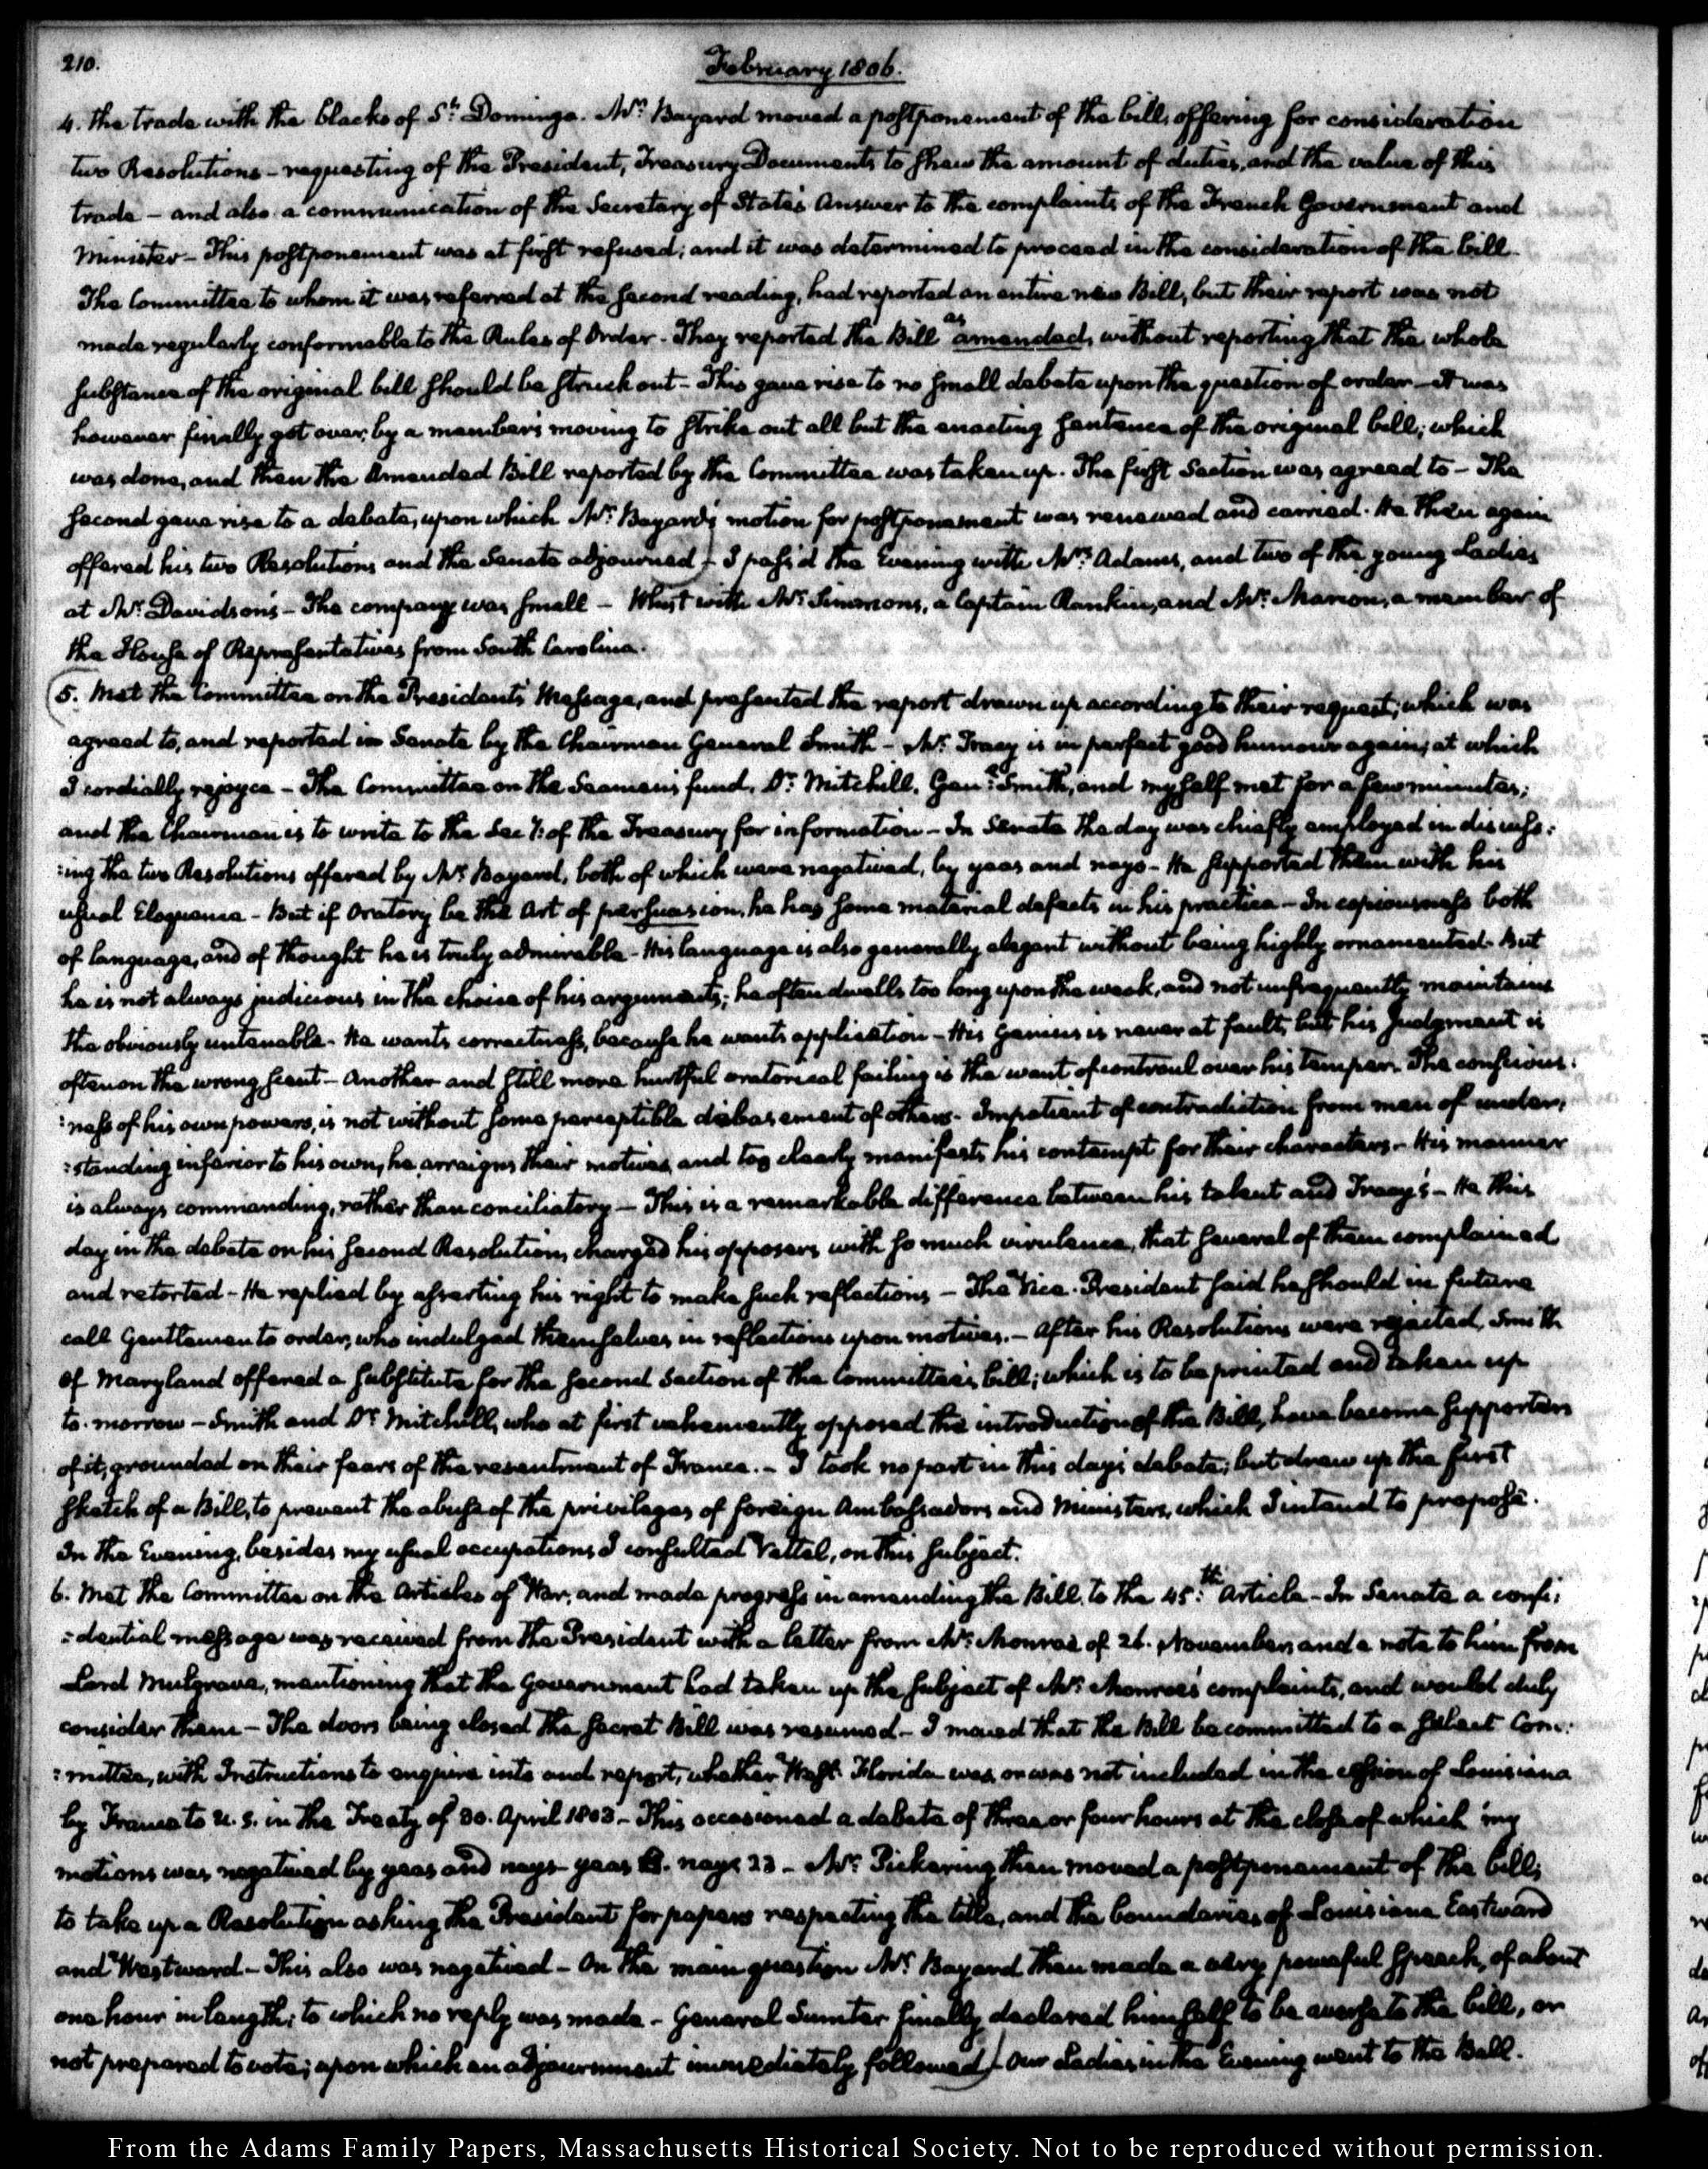 210.
February 1806.
4. the trade with the blacks of St. Domingo. Mr. Bayard moved a postponement of the bill, offering for consideration
two Resolutions - requesting of the President, Treasury Documents to shew the amount of duties, and the value of this
trade - and also a communication of the Secretary of State's Answer to the complaints of the French Government and
Minister - This postponement was at first refused; and it was determined to proceed in the consideration of the bill.
The Committee to whom it was referred at the second reading, had reported an entire new Bill, but their report was not
made regularly conformable to the Rules of Order - They reported the Bill as amended, without reporting that the whole
substance of the original bill should be struck out - This gave rise to no small debate upon the question of order - it was
however finally got over, by a member's moving to strike out all but the enacting sentence of the original bill; which
was done, and then the Amended Bill reported by the Committee was taken up. The first Section was agreed to - The
second gave rise to a debate, upon which Mr. Bayard's motion for postponement was renewed and carried. He then again
offered his two Resolutions and the Senate adjourned - I pass'd the Evening with Mrs. Adams, and two of the young Ladies
at Mr. Davidson's - The company was small - Whist with Mr. Simmons, a Captain Rankin, and Mr. Marion, a member of
the House of Representatives from South Carolina.
5. Met the Committee on the President's Message, and presented the report drawn up according to their request; which was
agreed to, and reported in Senate by the Chairman General Smith - Mr. Tracy is in perfect good humour again; at which
I cordially rejoyce - The Committee on the Seamen's fund, Dr. Mitchill, Genl. Smith, and myself met for a few minutes;
and the Chairman is to write to the Secy. of the Treasury for information - In Senate the day was chiefly employed in discuss:
:ing the two Resolutions offered by Mr. Bayard, both of which were negatived, by yeas and nays - He supported them with his
usual Eloquence - But if Oratory be the Art of persuasion, he has some material defects in his practice - In copiousness both
of language, and of thought he is truly admirable - His language is also generally elegant without being highly ornamented - But
he is not always judicious in the choice of his arguments; he often dwells too long upon the weak, and not unfrequently maintains
the obviously untenable - He wants correctness, because he wants application - His Genius is never at fault, but his Judgment is
often on the wrong scent - Another and still more hurtful oratorical failing is the want of controul over his temper. The conscious:
:ness of his own powers, is not without some perceptible debasement of others - Impatient of contradiction from men of under:
:standing inferior to his own, he arraigns their motives, and too clearly manifests his contempt for their characters - His manner
is always commanding, rather than conciliatory - This is a remarkable difference between his talent and Tracy's - He this
day in the debate on his second Resolution, charged his opposers with so much virulence, that several of them complained
and retorted - He replied by asserting his right to make such reflections - The Vice-President said he should in future
call Gentlemen to order, who indulged themselves in reflections upon motives. - After his Resolutions were rejected, Smith
of Maryland offered a substitute for the second Section of the Committee's bill; which is to be printed and taken up
to-morrow - Smith and Dr. Mitchill, who at first vehemently opposed the introduction of the Bill, have become supporters
of it, grounded on their fears of the resentment of France. - I took no part in this day's debate; but drew up the first
sketch of a Bill, to prevent the abuse of the privileges of foreign Ambassadors and Ministers, which I intend to propose.
In the Evening, besides my usual occupations I consulted Vattel, on this subject.
6. Met the Committee on the Articles of War, and made progress in amending the Bill, to the 45th. Article - In Senate a confi:
:dential message was received from the President with a letter from Mr. Monroe of 26. November, and a note to him from
Lord Mulgrave, mentioning that the Government had taken up the subject of Mr. Monroe's complaints, and would duly
consider them - The doors being closed the secret Bill was resumed - I moved that the Bill be committed to a select Com:
:mittee, with Instructions to enquire into and report, whether West Florida was or was not included in the cession of Louisiana
by France to U. S. in the Treaty of 30. April 1803 - This occasioned a debate of three or four hours at the close of which my
motions was negatived by yeas and nays - yeas nays 23 - Mr. Pickering then moved a postponement of the bill,
to take up a Resolution asking the President for papers respecting the title, and the boundaries of Louisiana Eastward
and Westward - This also was negatived - On the main question Mr. Bayard then made a very powerful speech, of about
one hour in length; to which no reply was made - General Sumter finally declared himself to be averse to the bill, or
not prepared to vote; upon which an adjournment immediately followed - Our Ladies in the Evening went to the Ball.
From the Adams Family Papers, Massachusetts Historical Society. Not to be reproduced without permission.